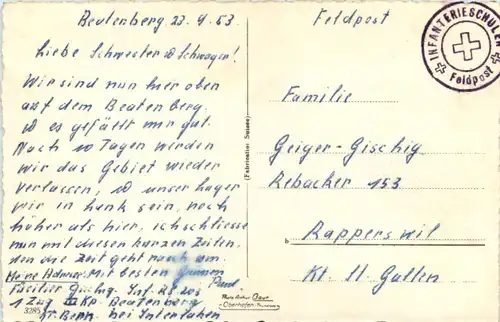 Beatenberg 23. 4. 53
Liebe Schwester & Schwager!
Wir sind nun hier oben
auf dem Beatenberg.
& es gefällt mir gut.
Nach 10 Tagen werden
wir das Gebiet wieder
verlassen, & unser Lager
wir in Lenk sein, noch
höher als hier, ich schliesse
nun mit diesen kurzen Zeilen,
den die Zeit geht rasch um.
Meine Adresse: Mit besten Grüssen
Füsilier Gischig. Inf. RS 203 Paul
1 Zug III Kp. Beatenberg
Kt. Bern bei Interlaken
3285
(Fabrication Suisse)
Photo Atelier Gaur
Oberhofen
Feldpost
INFANTERIESCHULEN
Feldpost
Familie
Geiger-Gischig
Rebacker 153
Rapperswil
Kt. St. Gallen